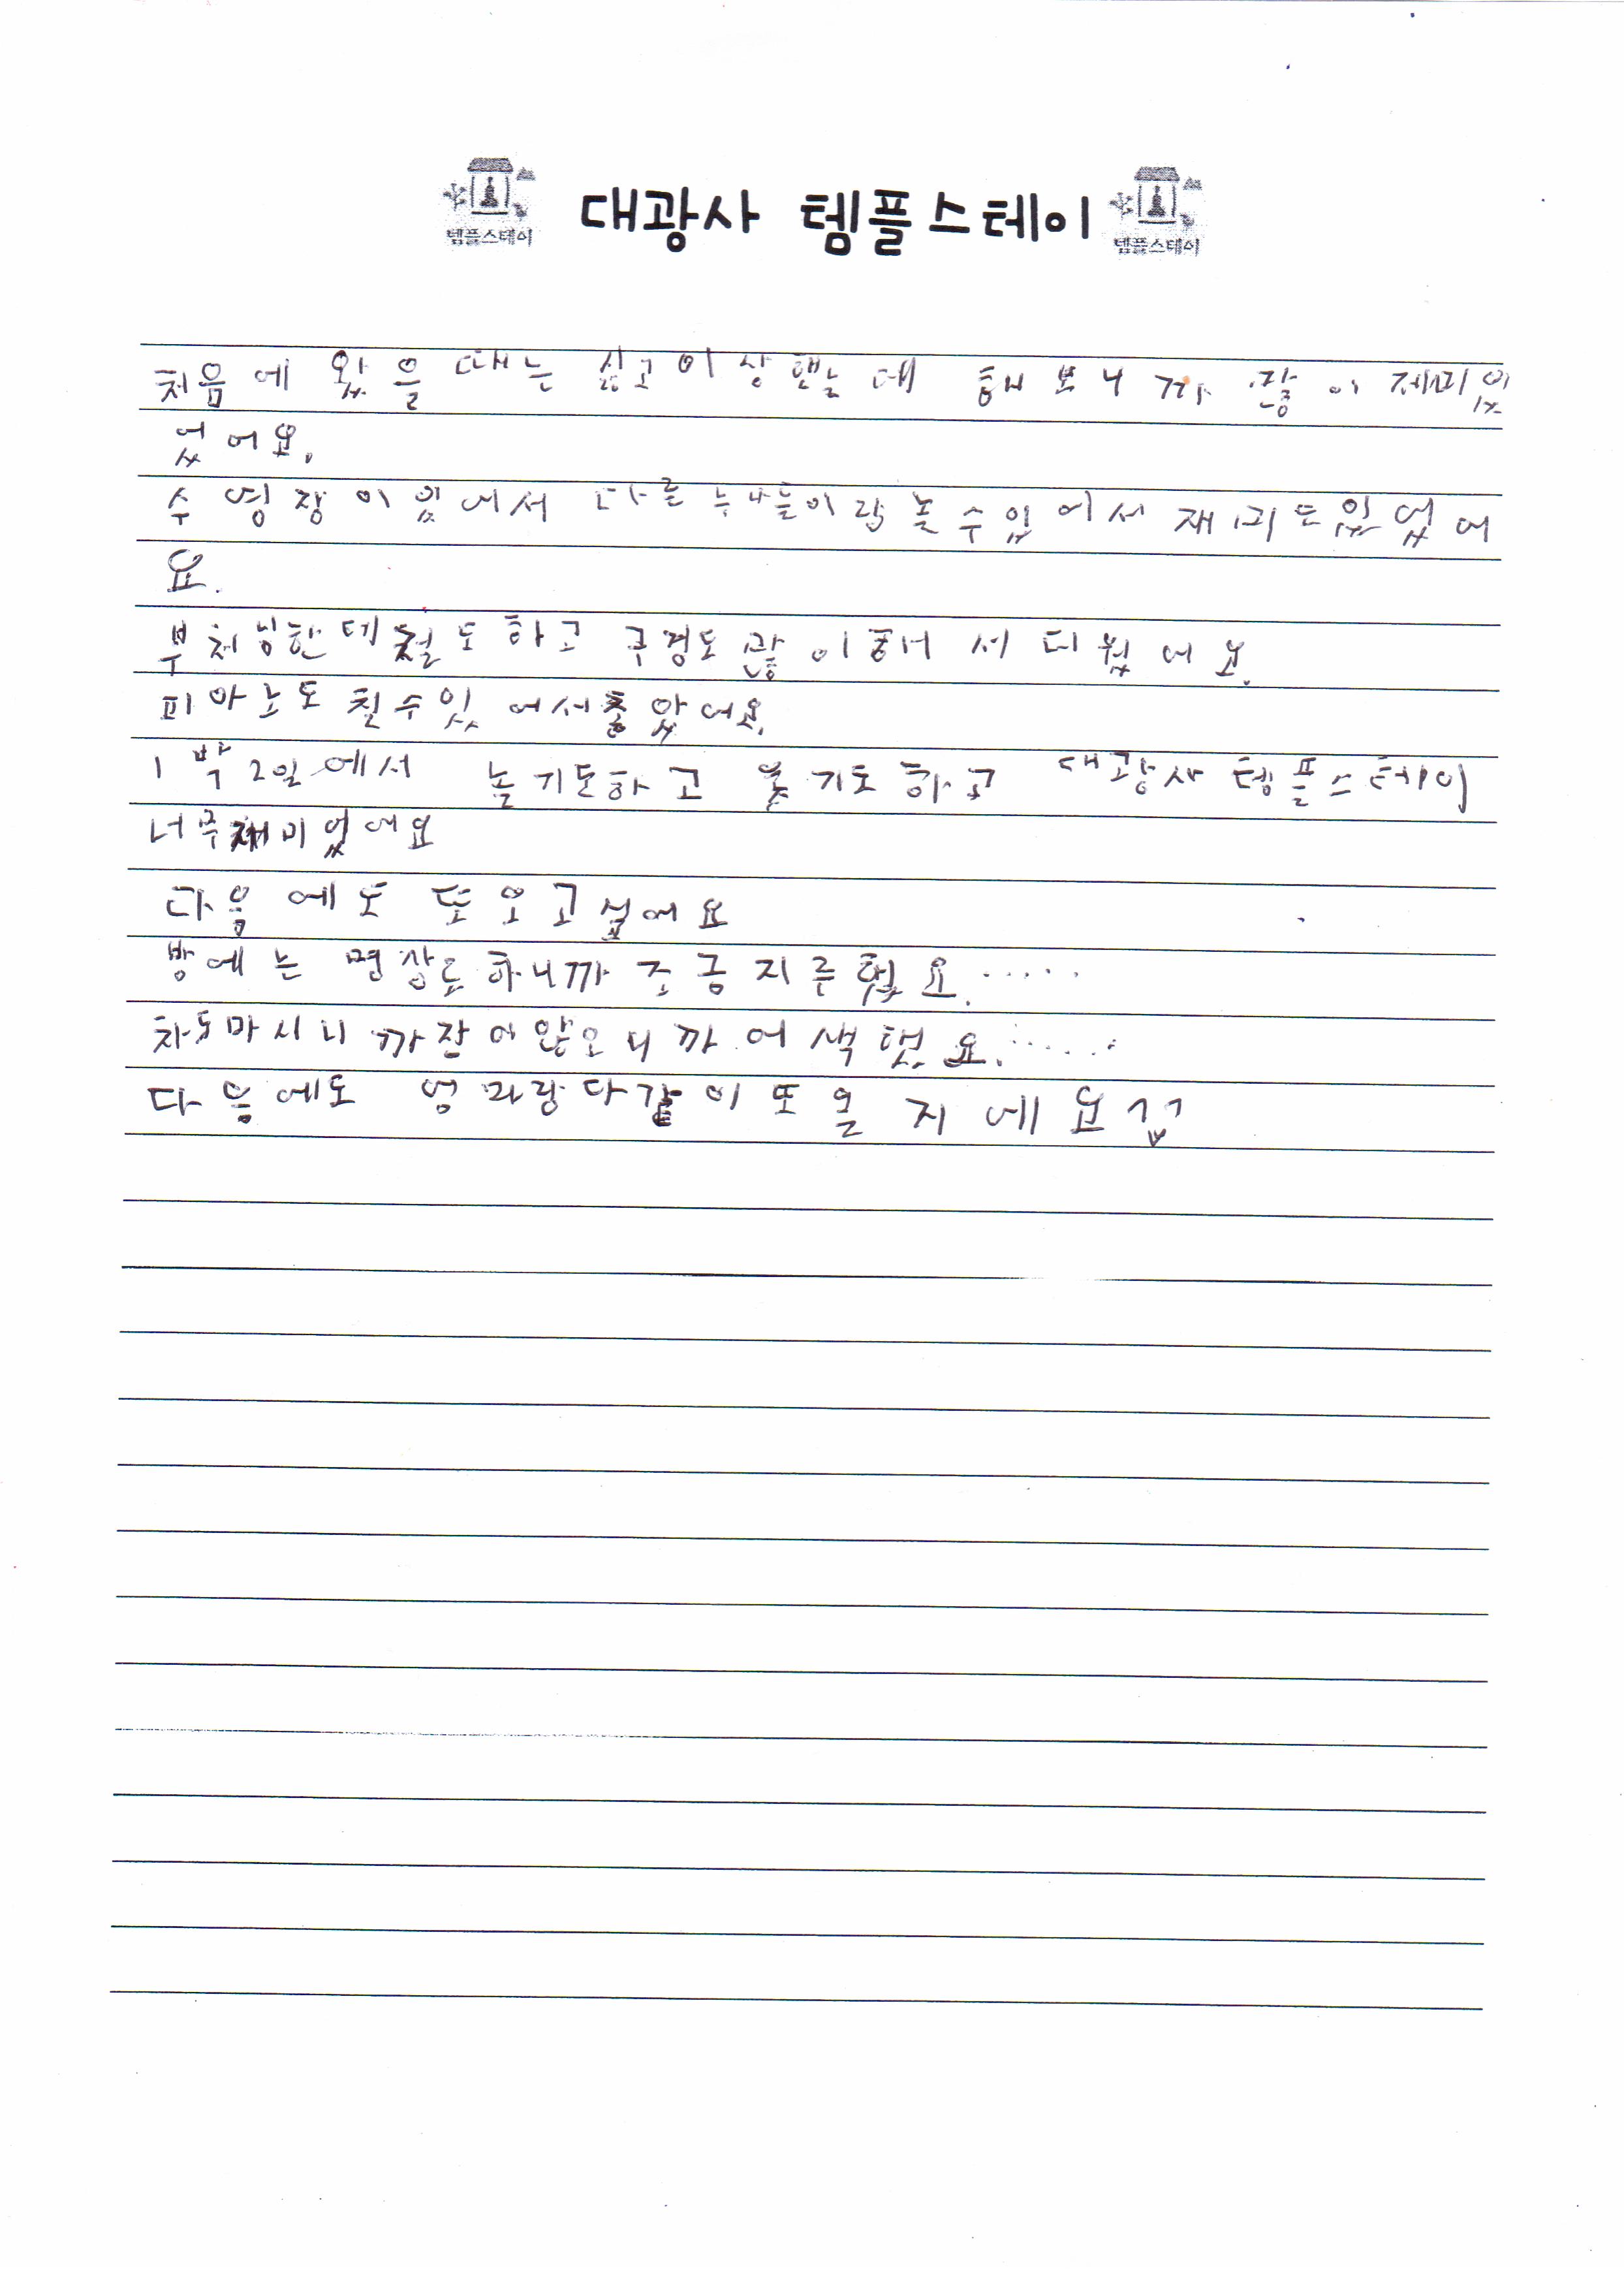 템플스테이 대광사 템플스테이 템플스테이
처음에 왔을 때는 싫고 이상했는데 해보니까 많이 재미있
었어요.
수영장이 있어서 다른 누나들이랑 놀 수 있어서 재미도 있었어
요.
부처님한테 절도 하고 구경도 많이 해서 더웠어요.
피아노도 칠 수 있어서 좋았어요.
1박2일에서 놀기도 하고 웃기도 하고 대광사 템플스테이
너무 재미있어요
다음에도 또 오고 싶어요
방에는 명상도 하니까 조금 지루했요.....
차도 마시니까 잠이 않오니까 어색했요.....
다음에도 엄마랑 다같이 또 올지에요